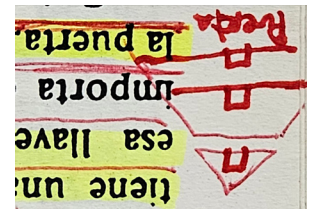 tiene una
esa llave
importa
la puerta,